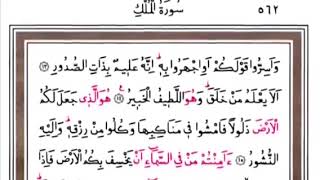 سُورَةُ الْمُلْكِ ٥٦٢
وَاَسِرُّوا قَوْلَكُمْ اَوِ اجْهَرُوا بِهٖۜ اِنَّهُ عَلٖيمٌ بِذَاتِ الصُّدُورِ ﴿١٣﴾
اَلَا يَعْلَمُ مَنْ خَلَقَۜ وَهُوَ اللَّطٖيفُ الْخَبٖيرُ ﴿١٤﴾ هُوَ الَّذٖي جَعَلَ لَكُمُ
الْاَرْضَ ذَلُولًا فَامْشُوا فٖي مَنَاكِبِهَا وَكُلُوا مِنْ رِزْقِهٖۜ وَاِلَيْهِ
النُّشُورُ ﴿١٥﴾ ءَاَمِنْتُمْ مَنْ فِي السَّمَٓاءِ اَنْ يَخْسِفَ بِكُمُ الْاَرْضَ فَاِذَا